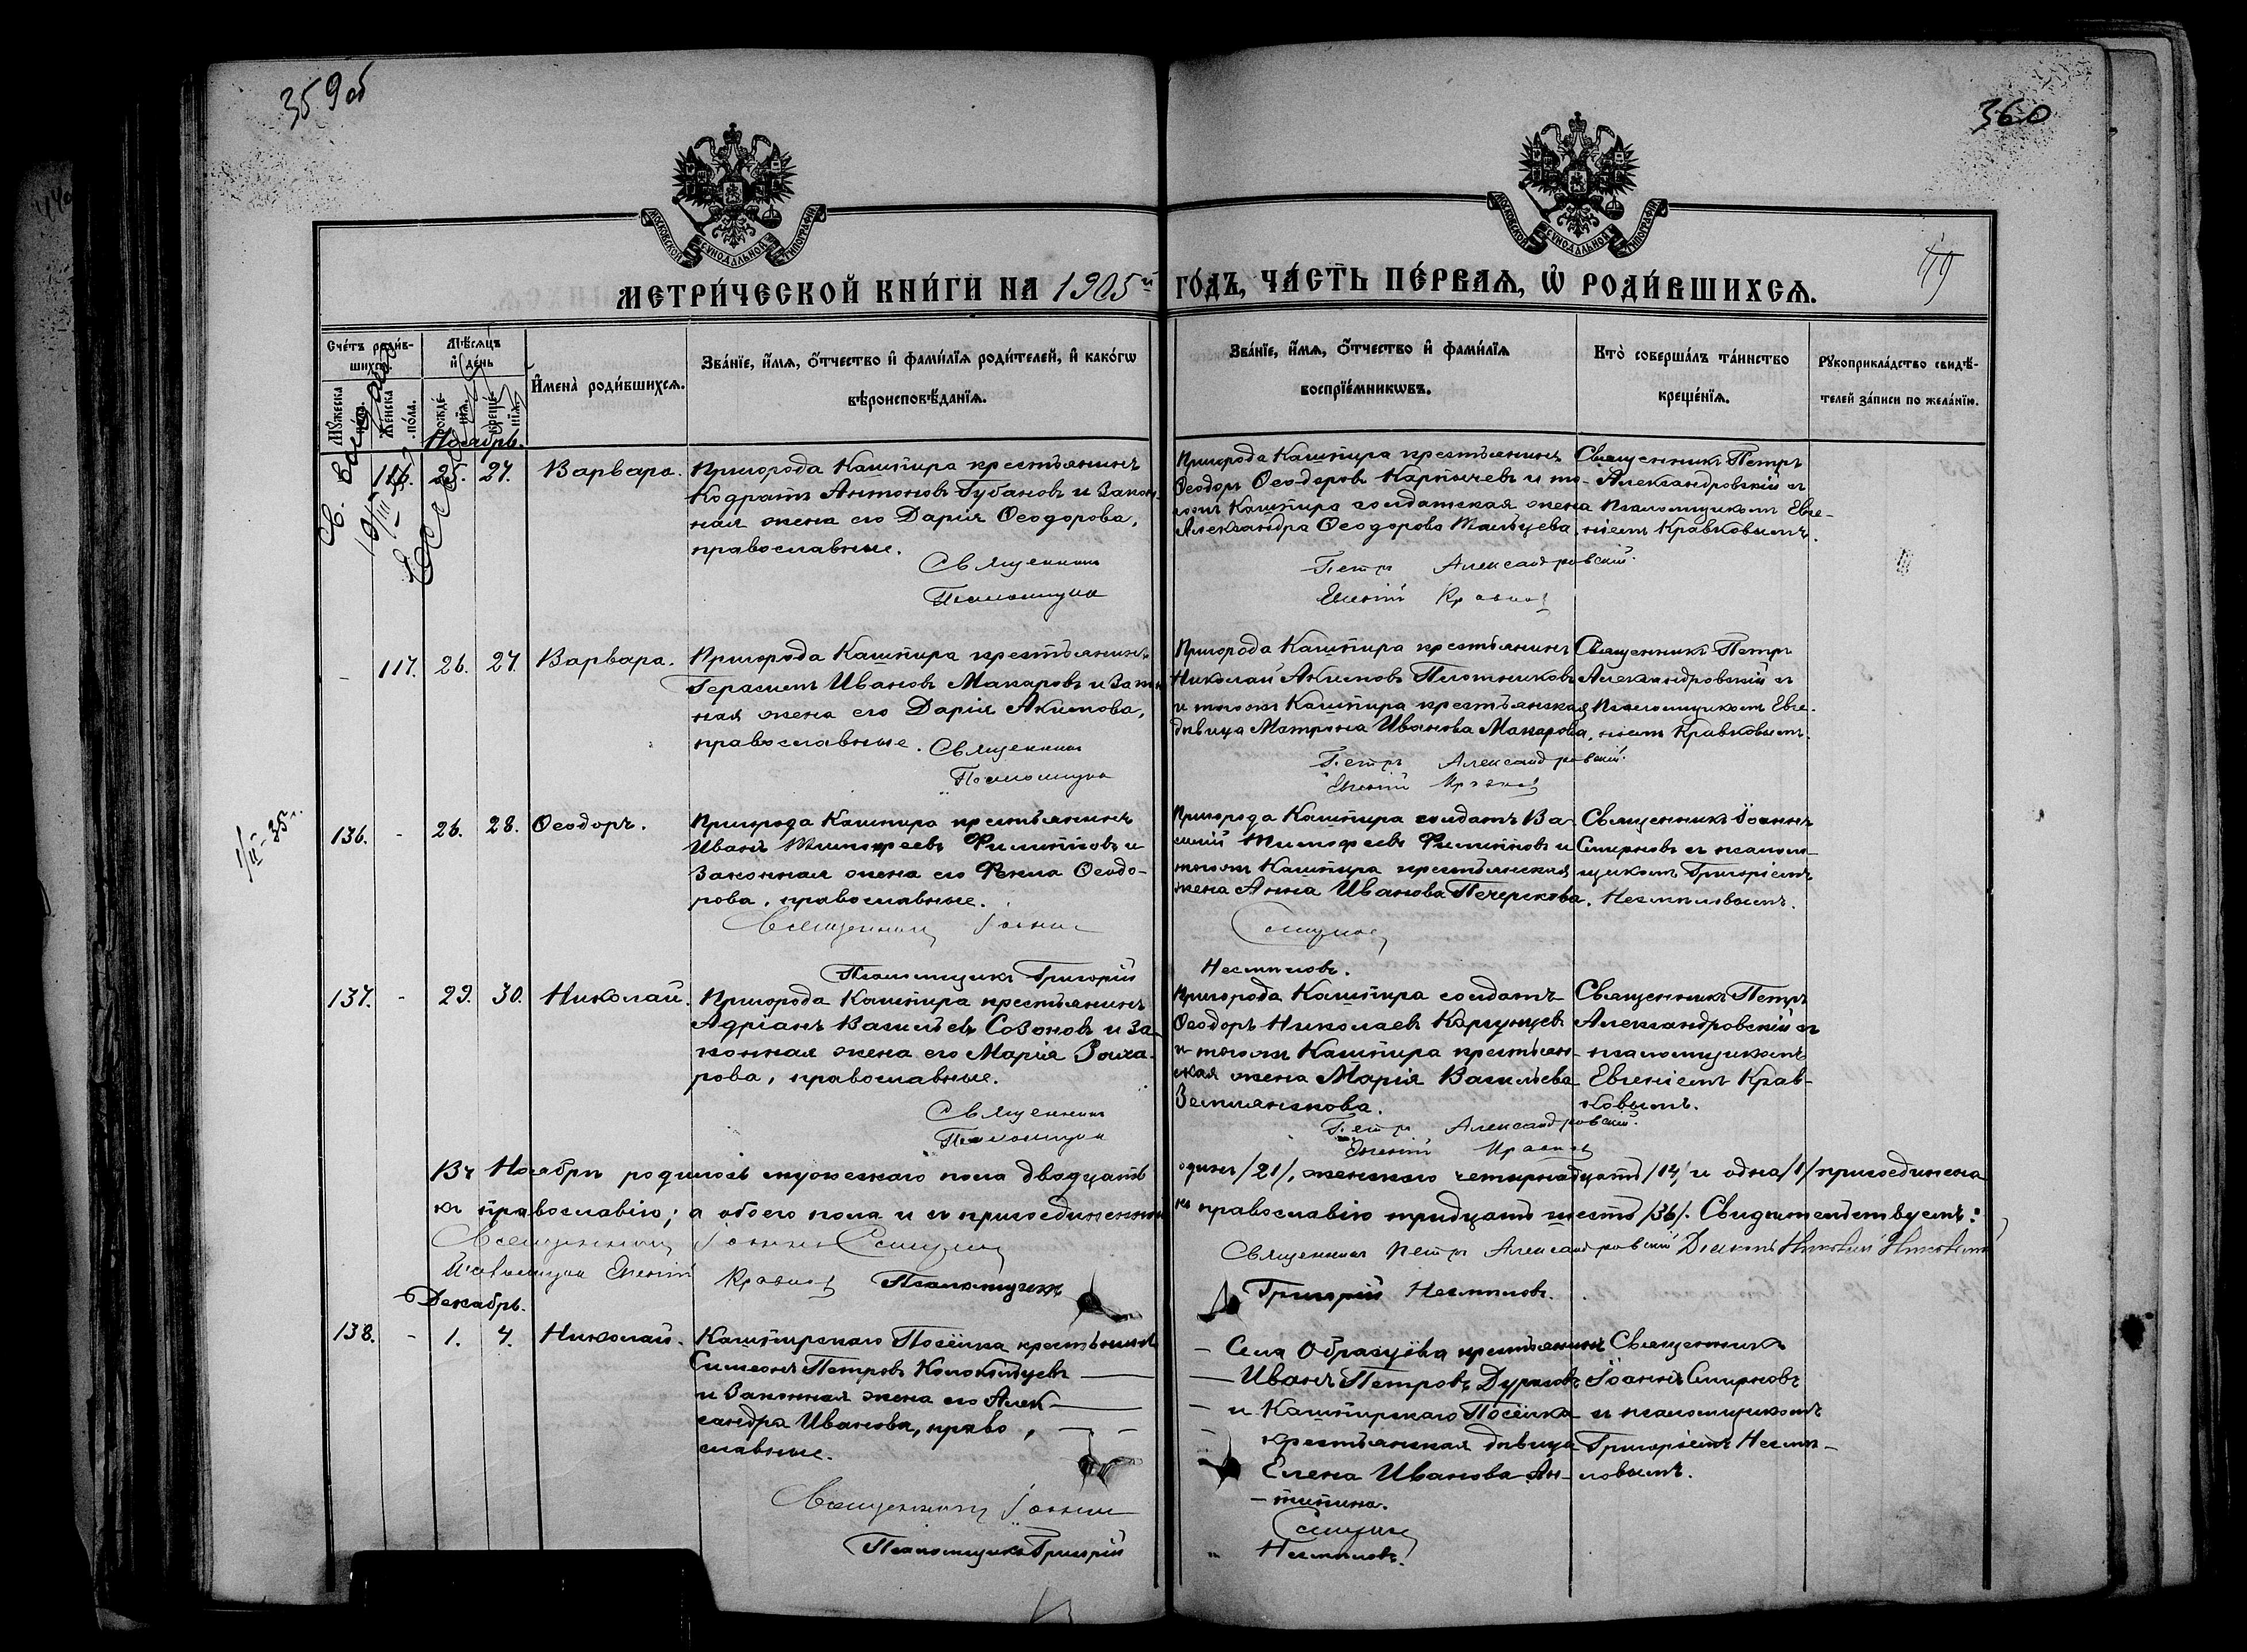 359об
360
МОСКОВСКОЙ СѴНОДАЛЬНОЙ ТИПОГРАФІИ
МОСКОВСКОЙ СѴНОДАЛЬНОЙ ТИПОГРАФІИ
МЕТРИ́ЧЕСКОЙ КНИ́ГИ НА 1905й ГО́ДЪ, ЧА́СТЬ ПЕ́РВАѦ, Ѽ РОДИ́ВШИХСѦ.
Сче́тъ роди́в-
шихсѧ.
Мѣ́сѧцъ
и҆ де́нь
Мꙋ́жеска
по́ла.
Же́нска
по́ла.
рожде́-
нїѧ.
креще́-
нїѧ.
И҆мена̀ роди́вшихсѧ.
Зва́нїе, и҆́мѧ, ѻ҆́тчество и҆ фами́лїѧ роди́телей, и҆ како́гѡ
вѣроисповѣ́данїѧ.
Зва́нїе, и҆́мѧ, ѻ҆́тчество и҆ фами́лїѧ
воспрїе́мникѡвъ.
Кто̀ соверша́лъ та́инство
креще́нїѧ.
Рꙋкоприкла́дство свидѣ́-
телей за́писи по жела́нїю.
Ноябрь.
116. 25. 27. Варвара.
Пригорода Кашпира крестьянинъ
Кодратъ Антоновъ Губановъ и закон-
ная жена его Дарія Ѳеодорова,
православные.
Священникъ
Псаломщикъ
Пригорода Кашпира крестьянинъ
Ѳеодоръ Ѳеодоровъ Карпычевъ и то-
гожъ Кашпира солдатская жена
Александра Ѳеодорова Мальцева.
Петръ Александровскій.
Евгеній Кравков
Священникъ Петръ
Александровскій съ
псаломщикомъ Евге-
ніемъ Кравковымъ.
- 117. 26. 27. Варвара.
Пригорода Кашпира крестьянинъ
Герасимъ Ивановъ Макаровъ и закон
ная жена его Дарія Акимова,
православные.
Священникъ
Псаломщикъ
Пригорода Кашпира крестьянинъ
Николай Акимовъ Плотниковъ
и тогожъ Кашпира крестьянская
дѣвица Матрона Иванова Макарова.
Петръ Александровскій.
Евгеній Кравков
Священникъ Петръ
Александровскій съ
псаломщикомъ Евге-
ніемъ Кравковымъ.
1/II-35г.
136. - 26. 28. Ѳеодоръ.
Пригорода Кашпира крестьянинъ
Иванъ Тимоѳеевъ Филипповъ и
законная жена его Фекла Ѳеодо-
рова, православные.
Священникъ Іоаннъ
Псаломщикъ Григорій
Пригорода Кашпира солдатъ Ва-
силій Тимоѳеевъ Филипповъ и
тогожъ Кашпира крестьянская
жена Анна Иванова Печерскова.
Смирнов
Несмѣловъ.
Священникъ Іоаннъ
Смирновъ съ псалом-
щикомъ Григоріемъ
Несмѣловымъ.
137. - 29. 30. Николай.
Пригорода Кашпира крестьянинъ
Адріанъ Васильевъ Созоновъ и за-
конная жена его Марія Заха-
рова, православные.
Священникъ
Псаломщикъ
Пригорода Кашпира солдатъ
Ѳеодоръ Николаевъ
и тогожъ Кашпира крестьян-
ская жена Марія Васильева
Землянскова.
Петръ Александровскій.
Евгеній Кравков
Священникъ Петръ
Александровскій съ
псаломщикомъ
Евгеніемъ Крав-
ковымъ.
Въ Ноябрѣ родилось мужескаго пола двадцать одинъ /21/, женскаго четырнадцать /14/ и одна /1/ присоединена
къ православію; а обоего пола и съ присоединенной къ православію тридцать шесть /36/. Свидѣтельствуемъ:
Священникъ Іоаннъ Смирнов Священникъ Петръ Александровскій Діаконъ
Псаломщикъ Евгеній Кравков Псаломщикъ Григорій Несмѣловъ.
Декабрь.
138. - 1. 4. Николай.
Кашпирскаго Посёлка крестьянинъ
Симеонъ Петровъ
и законная жена его Алек-
сандра Иванова, право
славные.
Священникъ Іоаннъ
Псаломщикъ Григорій
Села Образцова крестьянинъ
Иванъ Петровъ
и Кашпирскаго Посёлка
крестьянская дѣвица
Елена Иванова Ан-
типина.
Смирнов
Несмѣловъ.
Священникъ
Іоаннъ Смирновъ
и псаломщикомъ
Григоріемъ Несмѣ-
ловымъ.